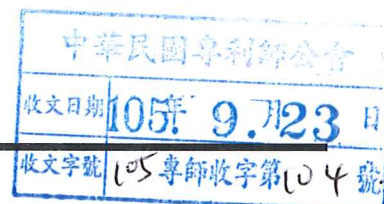 中華民國專利師公會
收文日期 105年 9.月23 日
收文字號 105 專師收字第104 號